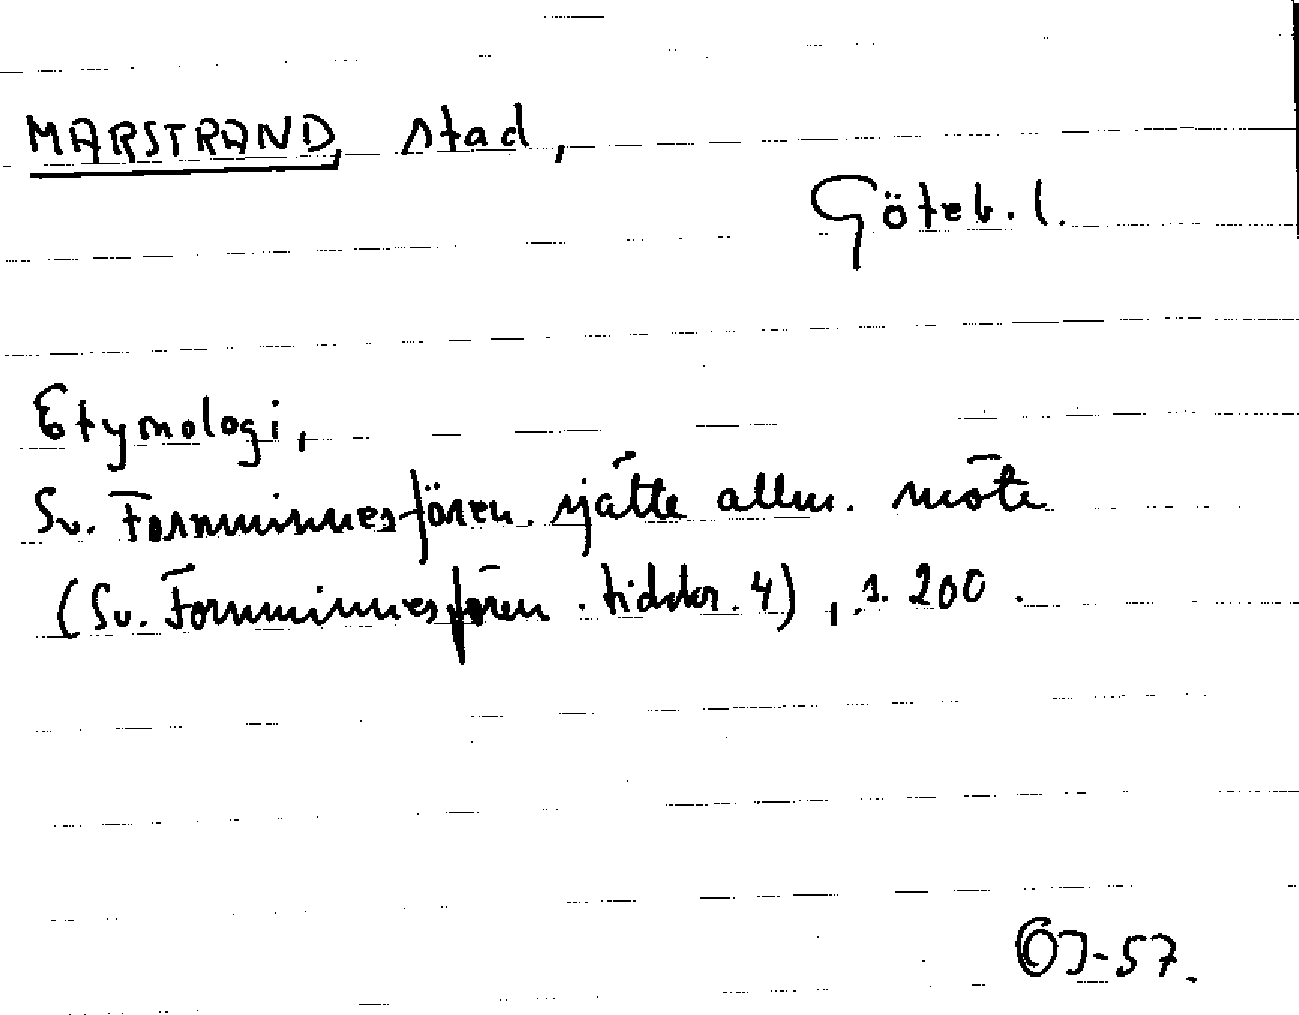 MARSTRAND, stad,
Göteb. l.
Etymologi,
Sv. Fornminnesfören. sjätte allm. möte
(Sv. Fornminnesfören. tidskr. 4), s. 200.
-57.